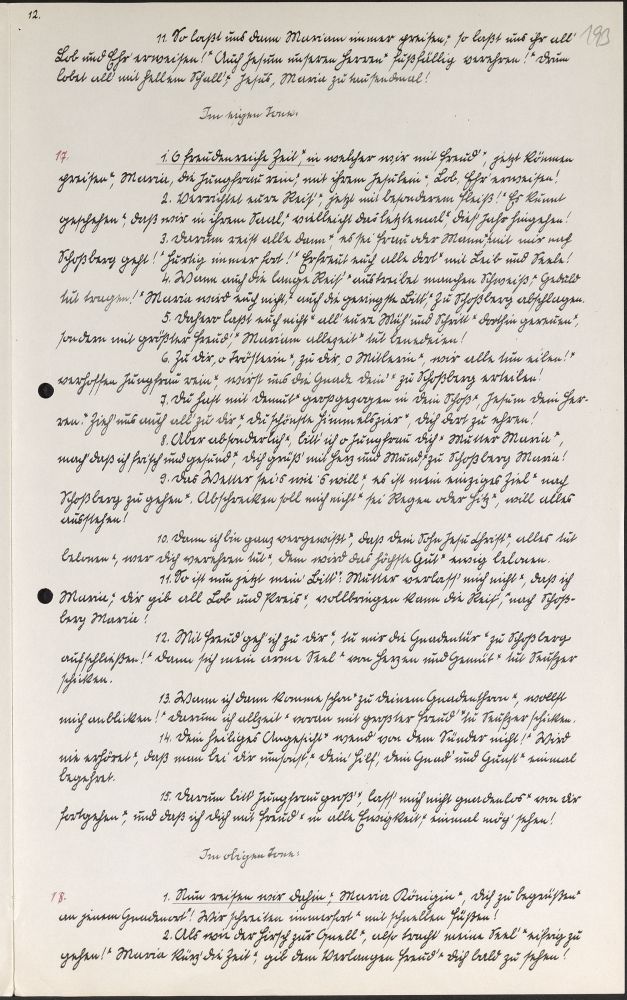 12.
193
11. So laßt uns dann Mariam immer preisen,* so laßt uns ihr all'
Lob und Ehr erweisen!* Auch Jesum unseren Herren* fußfällig verehren!* Drum
lobet all' mit hellem Schall,* Jesus, Maria zu tausendmal!
Im eigen Tone.
17. 1. O freudenreiche Zeit,* in welcher wir mit Freud'*, jetzt können
preisen*, Maria, die Jungfrau rein,* mit ihrem Jesulein*, Lob, Ehr erweisen!
2. Verrichtet eure Reis'*, jetzt mit besonderem Fleiß!* Es kunnt
geschehen*, daß wir in ihrem Saal,* vielleicht das letztemal*, dies' Jahr hingehen!
3. Darum reist alle dann*, es sei Frau oder Mann,* mit mir nach
Schoßberg geht!* Hurtig immer fort!* Erfreut euch alle dort* mit Leib und Seele!
4. Wann auch die lange Reis'* austreibet manchen Schweiß,* Geduld
tut tragen!* Maria wird euch nicht,* auch die geringste Bitt'* zu Schoßberg abschlagen.
5. Dahero laßt euch nicht* all' eure Müh' und Schritt* dorthin gereuen*,
sondern mit größter Freud'* Mariam allezeit* tut benedeien!
6. Zu dir, o Trösterin*, zu dir, o Mittlerin*, wir alle tun eilen!*
verhoffen Jungfrau rein*, wirst uns die Gnade dein'* zu Schoßberg erteilen!
7. Du hast mit Demut* großgezogen in dein Schoß*, Jesum dein Her-
ren.* Zieh' uns auch all' zu dir* du schönste Himmelszier*, dich dort zu ehren!
8. Aber absonderlich*, bitt' ich o Jungfrau dich* Mutter Maria*,
mach daß ich frisch und gesund*, dich grüß' mit Herz und Mund* zu Schoßberg Maria!
9. Das Wetter sei's wie's will*, es ist mein einziges Ziel* nach
Schoßberg zu gehen*. Abschrecken soll mich nicht* sei Regen oder Hitz*, will alles
ausstehen!
10. Dann ich bin ganz vergewißt*, daß dein Sohn Jesu Christ*, alles tut
belonen*, wer dich verehren tut*, dem wird das höchste Gut* ewig belonen.
11. So ist nun jetzt mein Bitt'* Mutter verlass' mich nicht*, daß ich
Maria,* dir gib all Lob und Preis*, vollbringen kann die Reis',* nach Schoß-
berg Maria!
12. Mit Freud' geh' ich zu dir*, tu mir die Gnadentür* zu Schoßberg
aufschließen!* Dann sich mein arme Seel'* von Herzen und Gemüt* tut Seufzer
schicken.
13. Wann ich dann komme schon* zu deinem Gnadenthron*, wollst
mich anblicken!* Darum ich allzeit* voran mit größter Freud'* tu Seufzer schicken.
14. Dein heiliges Angesicht* wend' von dem Sünder nicht!* Wird
nie erhöret*, daß man bei dir umsonst,* dein' Hilf', dein Gnad' und Gunst* einmal
begehret.
15. Darum bitt' Jungfrau groß'*, lass' mich nicht gnadenlos* von dir
fortgehen*, und daß ich dich mit Freud'* in alle Ewigkeit,* einmal mög' sehen!
Im obigen Tone:
18. 1. Nun reisen wir dahin,* Maria Königin*, dich zu begrüßen*
an jenem Gnadenort*! Wir schreiten immerfort* mit schnellen Füßen!
2. Als wie der Hirsch zur Quell*, also tracht' meine Seel'* eifrig zu
gehen!* Maria kürz' die Zeit*, gib dem Verlangen Freud'* dich bald zu sehen!